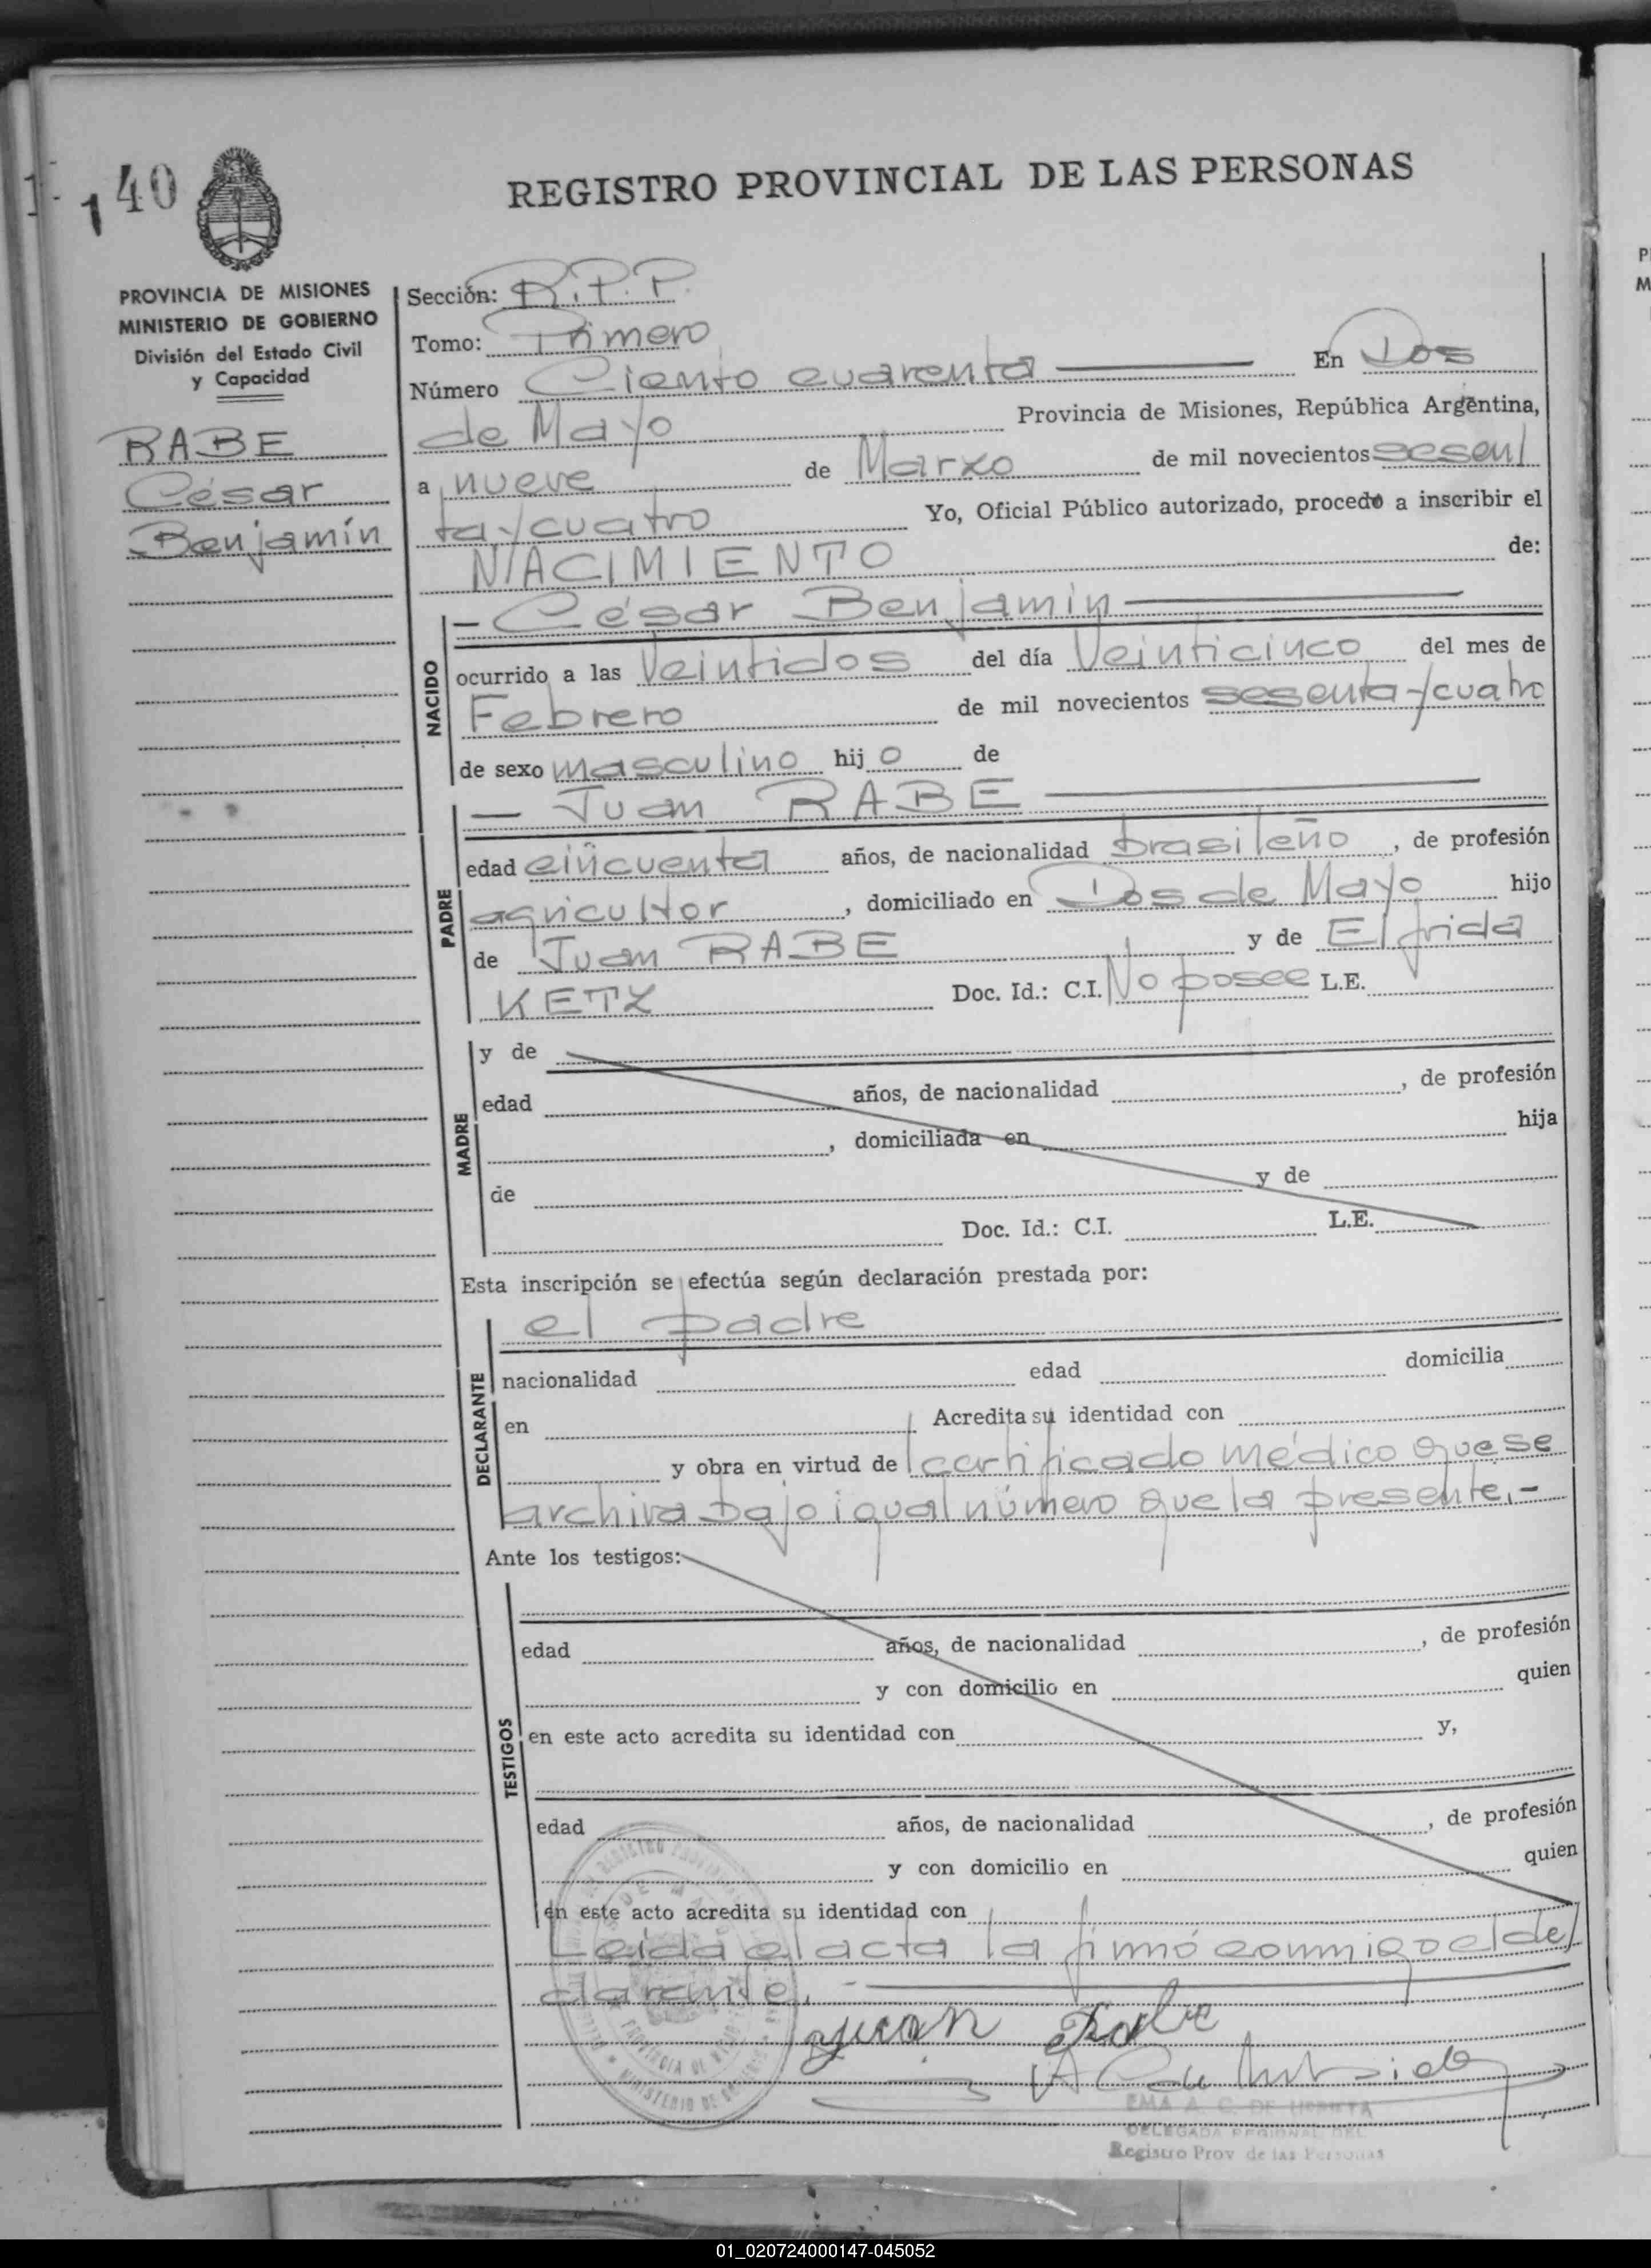 140
REGISTRO PROVINCIAL DE LAS PERSONAS
PROVINCIA DE MISIONES
MINISTERIO DE GOBIERNO
División del Estado Civil
y Capacidad
RABE
César
Benjamín
Sección: R.P.P.
Tomo: Primero
Número Ciento cuarenta En Dos
de Mayo Provincia de Misiones, República Argentina,
a nueve de Marzo de mil novecientos sesen/
ta y cuatro Yo, Oficial Público autorizado, procedo a inscribir el
NACIMIENTO de:
NACIDO
— César Benjamín —
ocurrido a las Veintidos del día Veinticinco del mes de
Febrero de mil novecientos sesenta y cuatro
de sexo masculino hijo de
PADRE
— Juan RABE —
edad cincuenta años, de nacionalidad brasileño, de profesión
agricultor, domiciliado en Dos de Mayo hijo
de Juan RABE y de Elfrida
KETZ Doc. Id.: C.I. No posee L.E.
MADRE
y de
edad años, de nacionalidad , de profesión
, domiciliada en hija
de y de
Doc. Id.: C.I. L.E.
Esta inscripción se efectúa según declaración prestada por:
DECLARANTE
el padre
nacionalidad edad domicilia
en Acredita su identidad con
y obra en virtud de certificado médico que se
archiva bajo igual número que la presente.-
Ante los testigos:
TESTIGOS
edad años, de nacionalidad , de profesión
y con domicilio en quien
en este acto acredita su identidad con y,
edad años, de nacionalidad , de profesión
y con domicilio en quien
en este acto acredita su identidad con
Leida el acta la firmó conmigo el de/
clarante. -
Juan Rabe
EMA A. C. DE
DELEGADA REGIONAL DEL
Registro Prov de las Personas
01_020724000147-045052